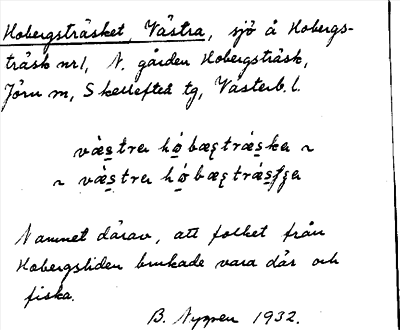 Hobergsträsket, Västra, sjö å Hobergs-
träsk nr1, N. gården Hobergsträsk,
Jörn m, Skellefteå tg, Västerb. l.
væ̀stra hó̱bæꞔtrǽska ~
~ væ̀stra hó̱bæꞔtrǽsʃʒa
Namnet därav, att folket från
Hobergsliden brukade vara där och
fiska.
B. Nygren 1932.